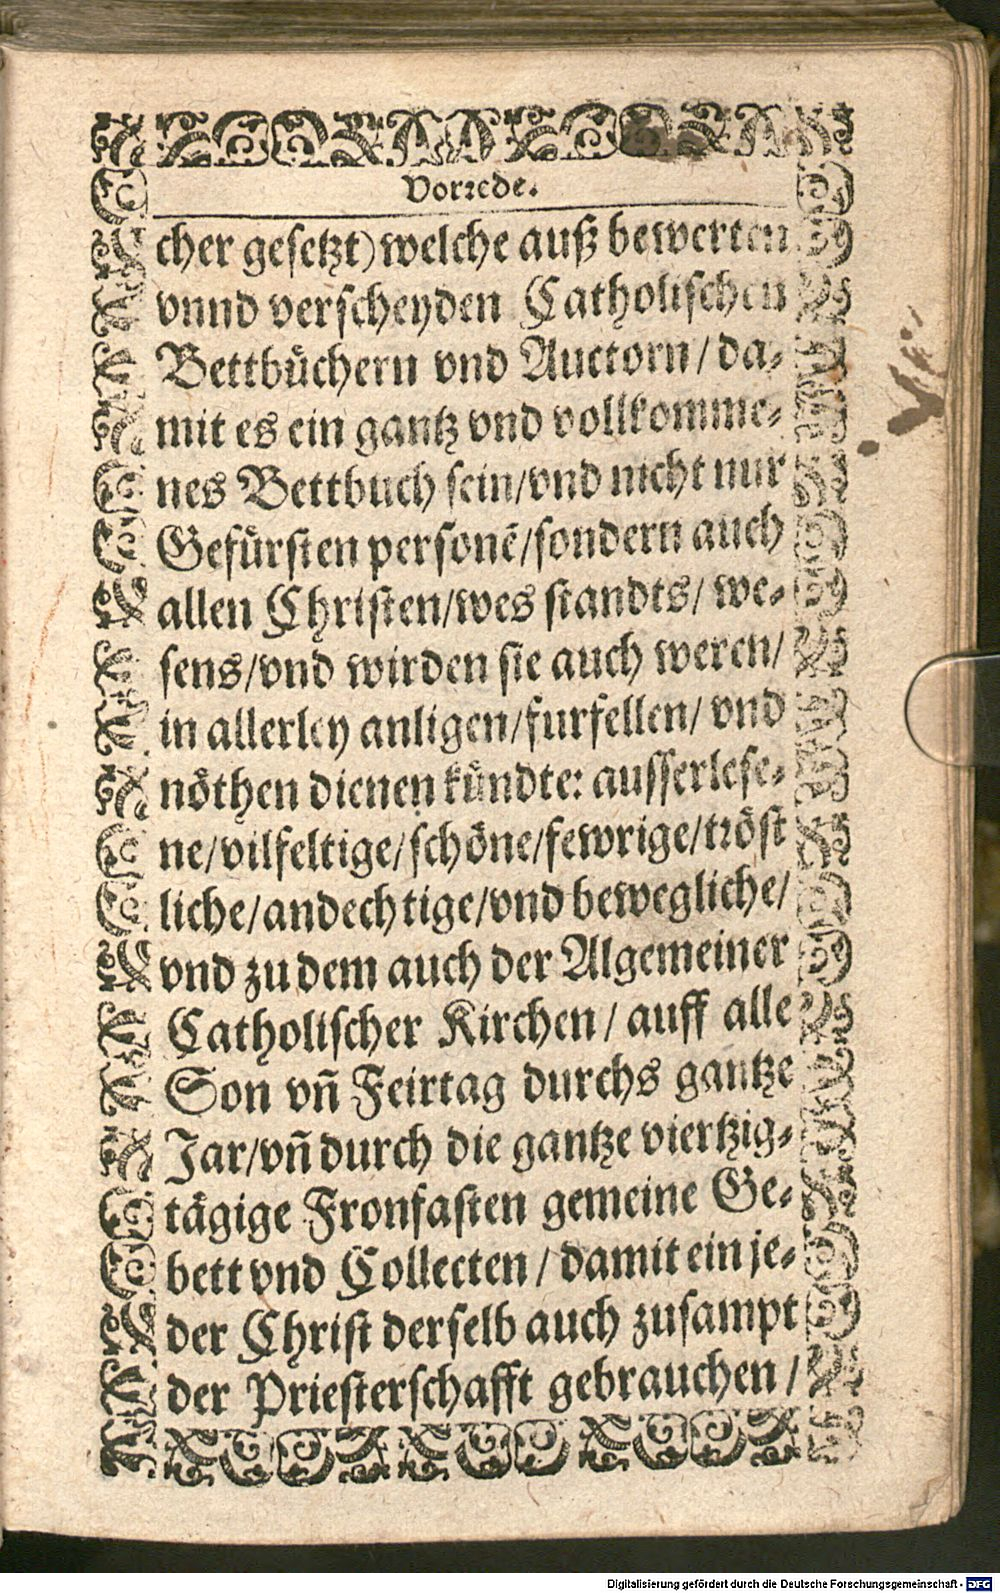 Vorrede.
cher gesetzt) welche auß bewerten
vnnd verscheyden Catholischen
Bettbüchern vnd Auctorn / da⸗
mit es ein gantz vnd vollkomme⸗
nes Bettbuch sein / vnd nicht nur
Gefürsten personē / sondern auch
allen Christen / wes standts / we⸗
sens / vnd wirden sie auch weren /
in allerley anligen / furfellen / vnd
nöthen dienen kündte: ausserlese⸗
ne / vilfeltige / schöne / fewrige / tröst
liche / andechtige / vnd bewegliche /
vnd zu dem auch der Algemeiner
Catholischer Kirchen / auff alle
Son vñ Feirtag durchs gantze
Jar / vñ durch die gantze viertzig⸗
tägige Fronfasten gemeine Ge⸗
bett vnd Collecten / damit ein je⸗
der Christ derselb auch zusampt
der Priesterschafft gebrauchen /
Digitalisierung gefördert durch die Deutsche Forschungsgemeinschaft - DFG